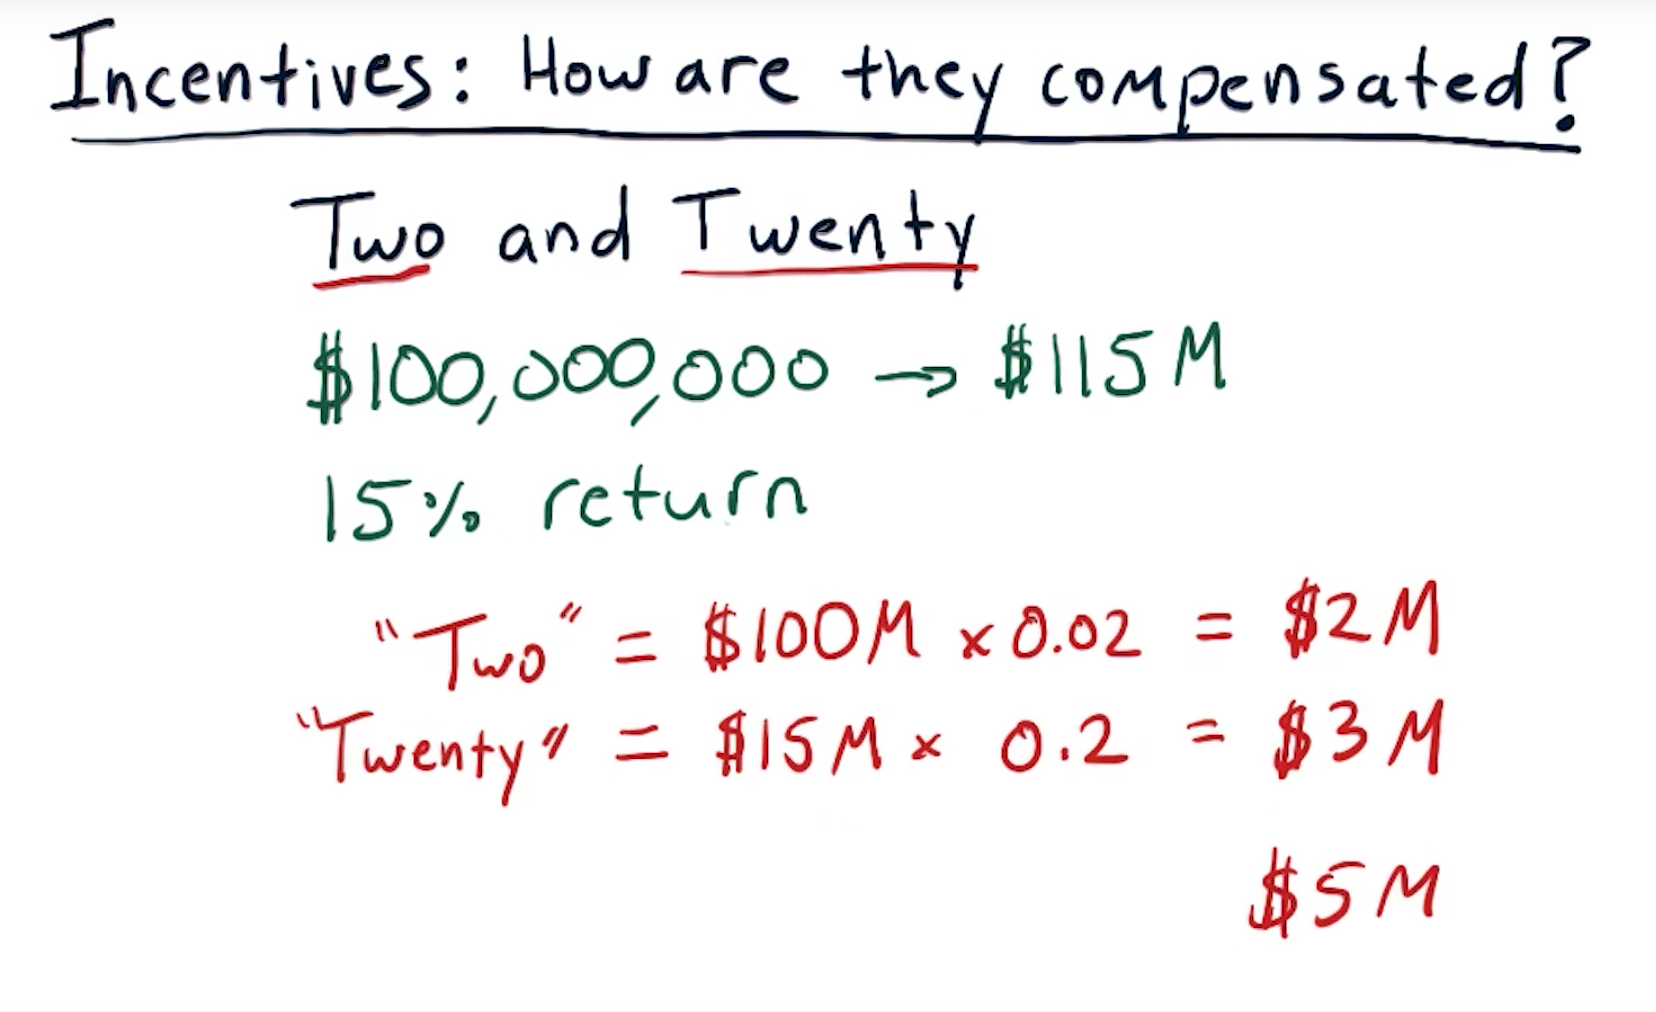 Incentives: How are they compensated?
Two and Twenty
$100,000,000 → $115M
15% return
"Two" = $100M x 0.02 = $2M
"Twenty" = $15M x 0.2 = $3M
$5M